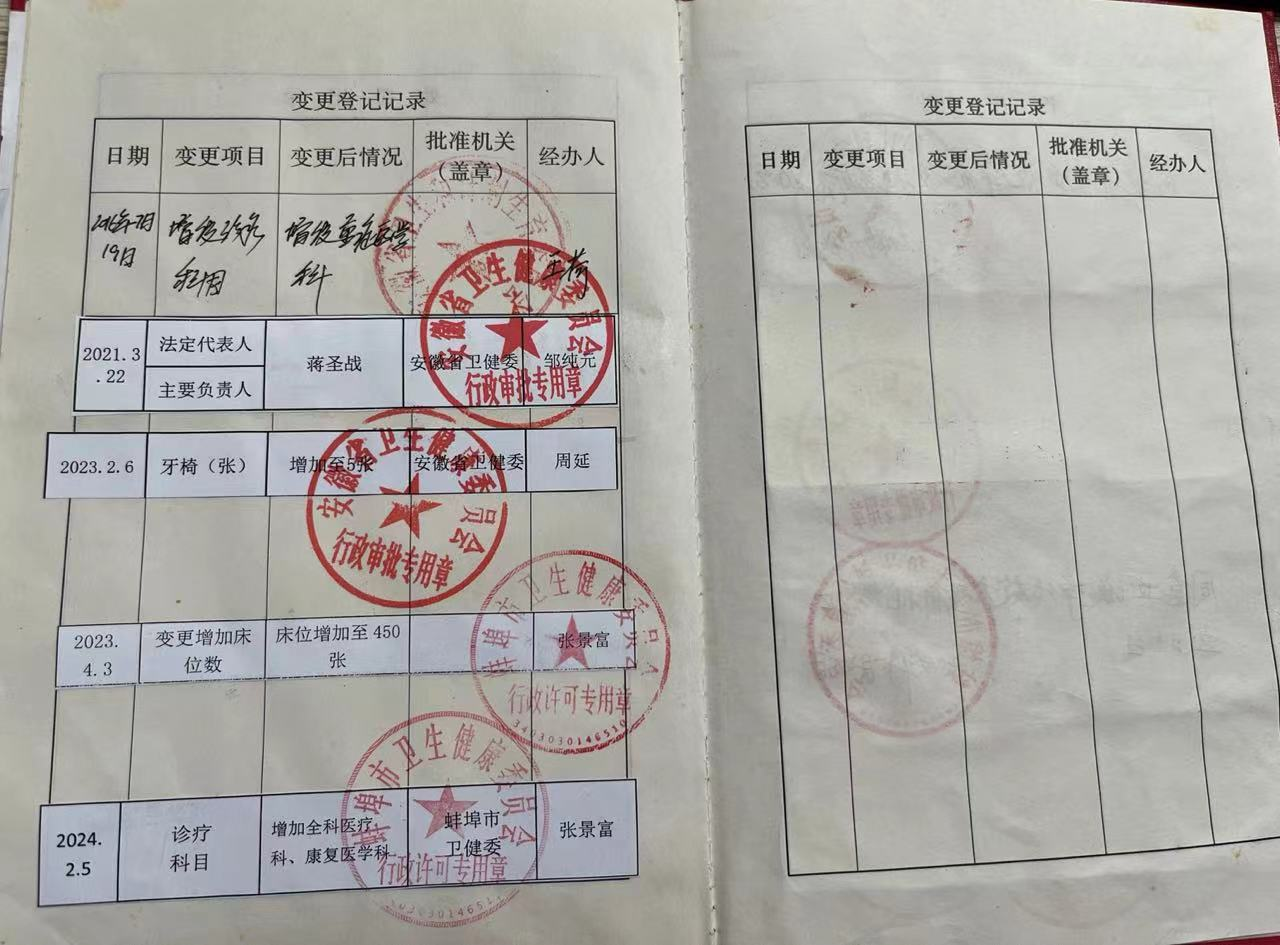 变更登记记录
日期 变更项目 变更后情况 批准机关（盖章） 经办人
19日 增设诊疗科目 增设重症医学科 王荷
2021.3.22 法定代表人 蒋圣战 安徽省卫健委 邹纯元
主要负责人
安徽省卫生健康委员会
行政审批专用章
2023.2.6 牙椅（张） 增加至5张 安徽省卫健委 周延
安徽省卫生健康委员会
行政审批专用章
2023.4.3 变更增加床位数 床位增加至 450张 张景富
蚌埠市卫生健康委员会
行政许可专用章
3403030146510
2024.2.5 诊疗科目 增加全科医疗科、康复医学科 蚌埠市卫健委 张景富
蚌埠市卫生健康委员会
行政许可专用章
变更登记记录
日期 变更项目 变更后情况 批准机关（盖章） 经办人